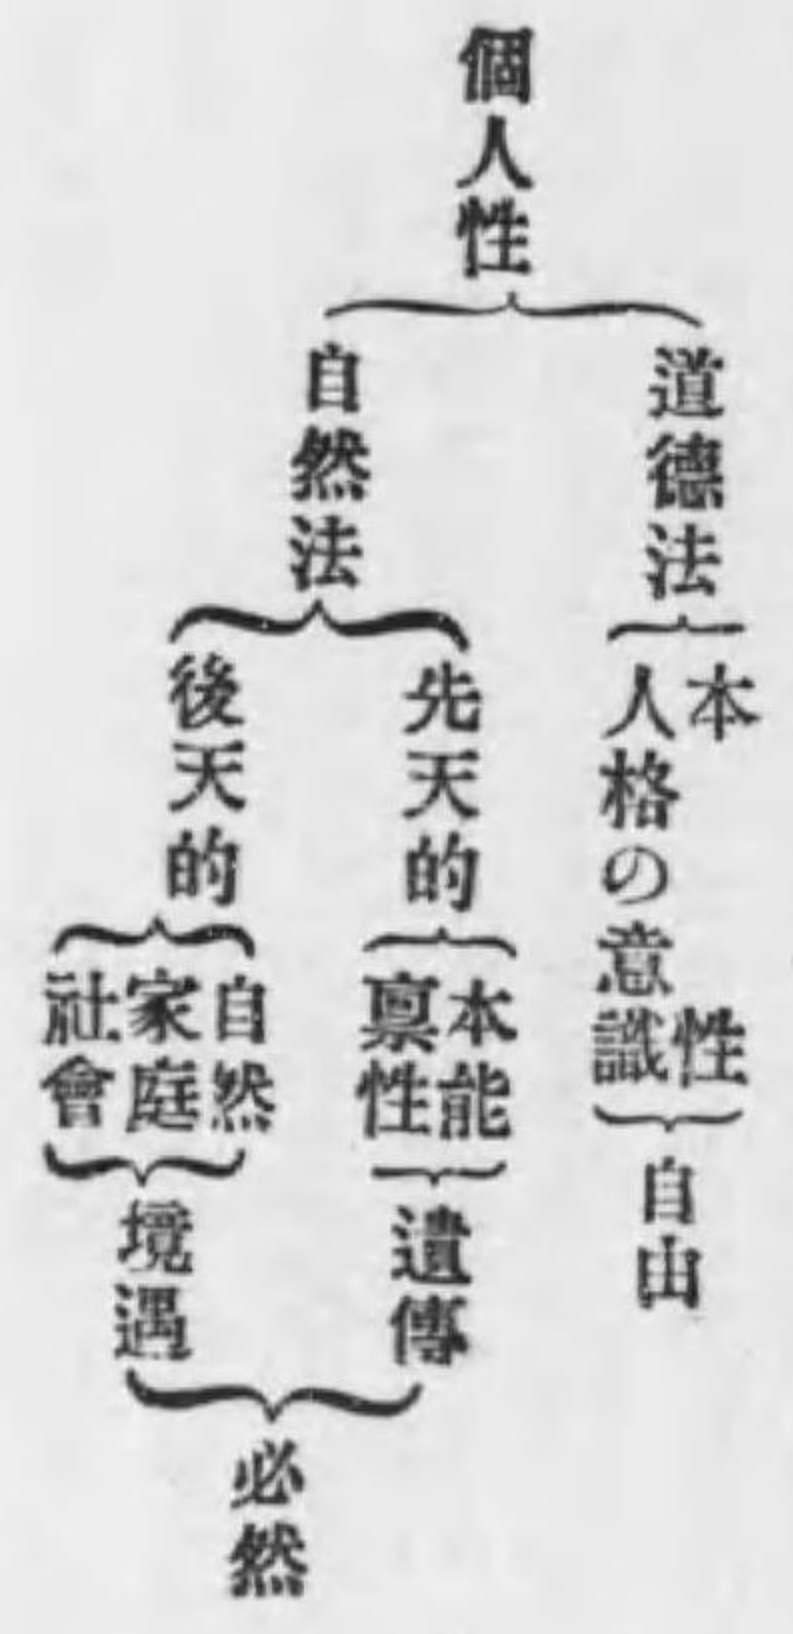 個人性
道德法
本性
人格の意識
自由
自然法
先天的
本能
稟性
遺傳
後天的
自然
家庭
社會
境遇
必然